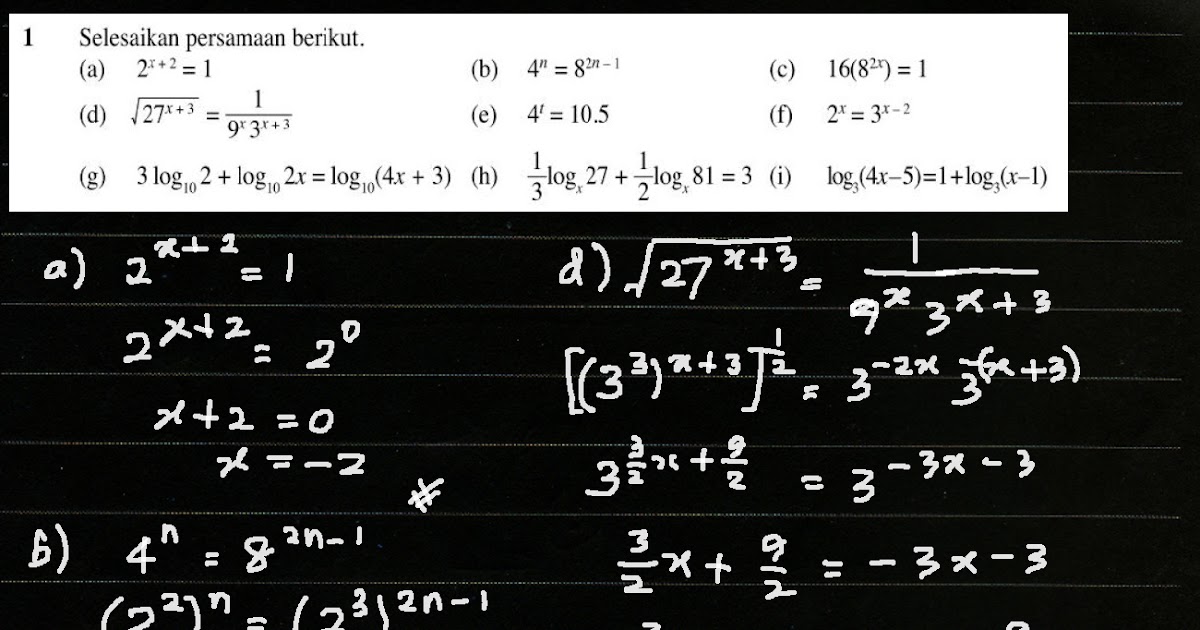 1 Selesaikan persamaan berikut.
(a) 2^{x+2} = 1 (b) 4^n = 8^{2n-1} (c) 16(8^{2x}) = 1
(d) √(27^{x+3}) = 1/(9^x 3^{x+3}) (e) 4^t = 10.5 (f) 2^x = 3^{x-2}
(g) 3 log₁₀ 2 + log₁₀ 2x = log₁₀(4x + 3) (h) 1/3 logₓ 27 + 1/2 logₓ 81 = 3 (i) log₃(4x–5)=1+log₃(x–1)
a) 2^{x+2} = 1
2^{x+2} = 2^0
x+2 = 0
x = -2
b) 4^n = 8^{2n-1}
(2^2)^n = (2^3)^{2n-1}
d) √(27^{x+3}) = 1/(9^x 3^{x+3})
[(3^3)^{x+3}]^{1/2} = 3^{-2x} 3^{-(x+3)}
3^{3/2 x + 9/2} = 3^{-3x-3}
3/2 x + 9/2 = -3x-3